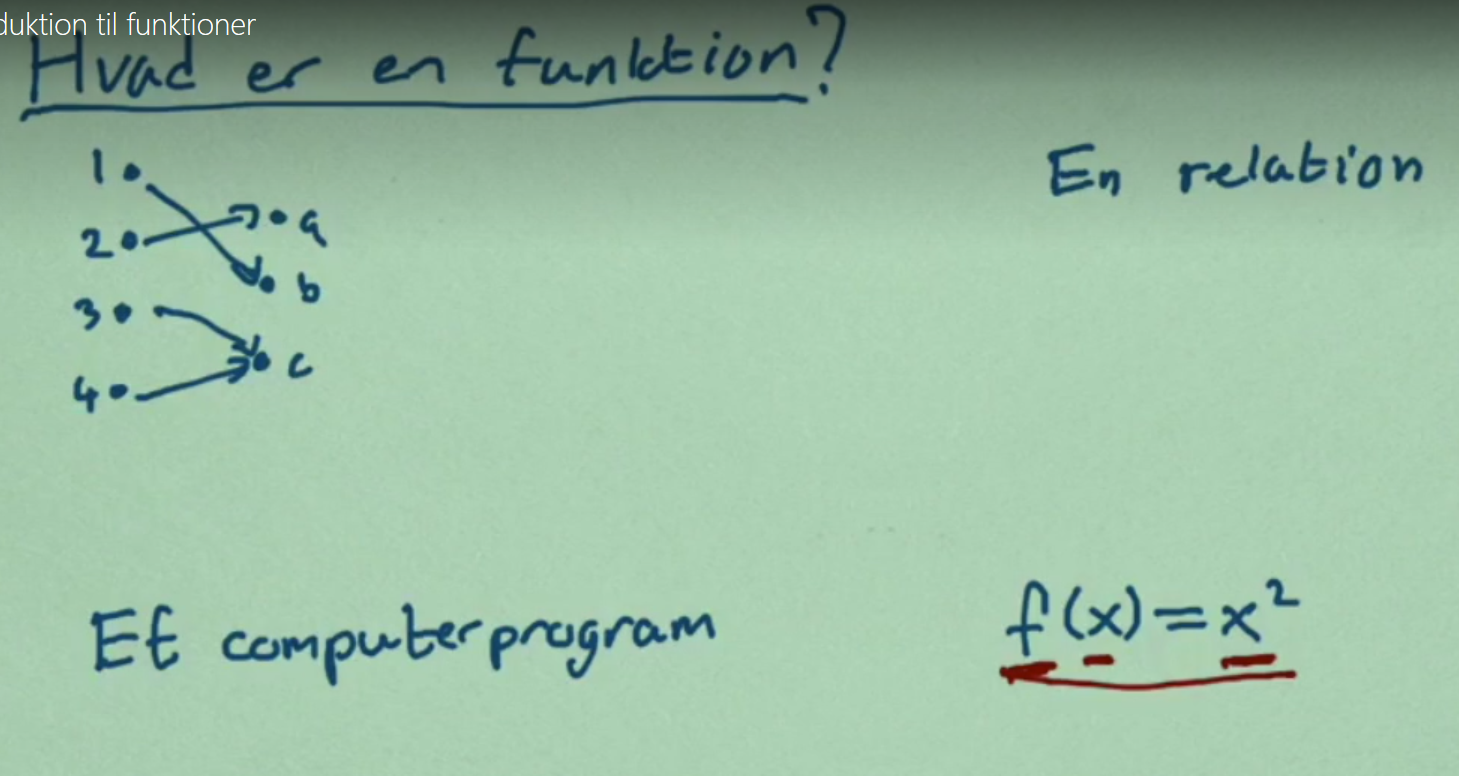 duktion til funktioner
Hvad er en funktion?
1
En relation
2 a
b
3
c
4
Et computerprogram
f(x)=x²